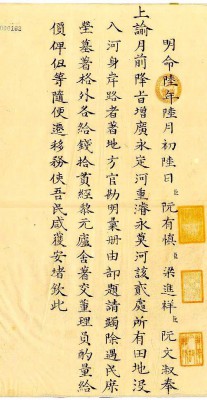 明命陸年陸月初陸日臣阮有慎臣梁進祥臣阮文淑奉
上諭月前降旨增廣永定河重濬永奠河該貳處所有田地沒
入河身岸路者著地方官勘明稟冊由部題請蠲除遇民家
塋墓著格外各給錢拾貫經黎元廬舍著交董理員酌量給
價俾伊等隨便遷移務使吾民咸獲安堵欽此